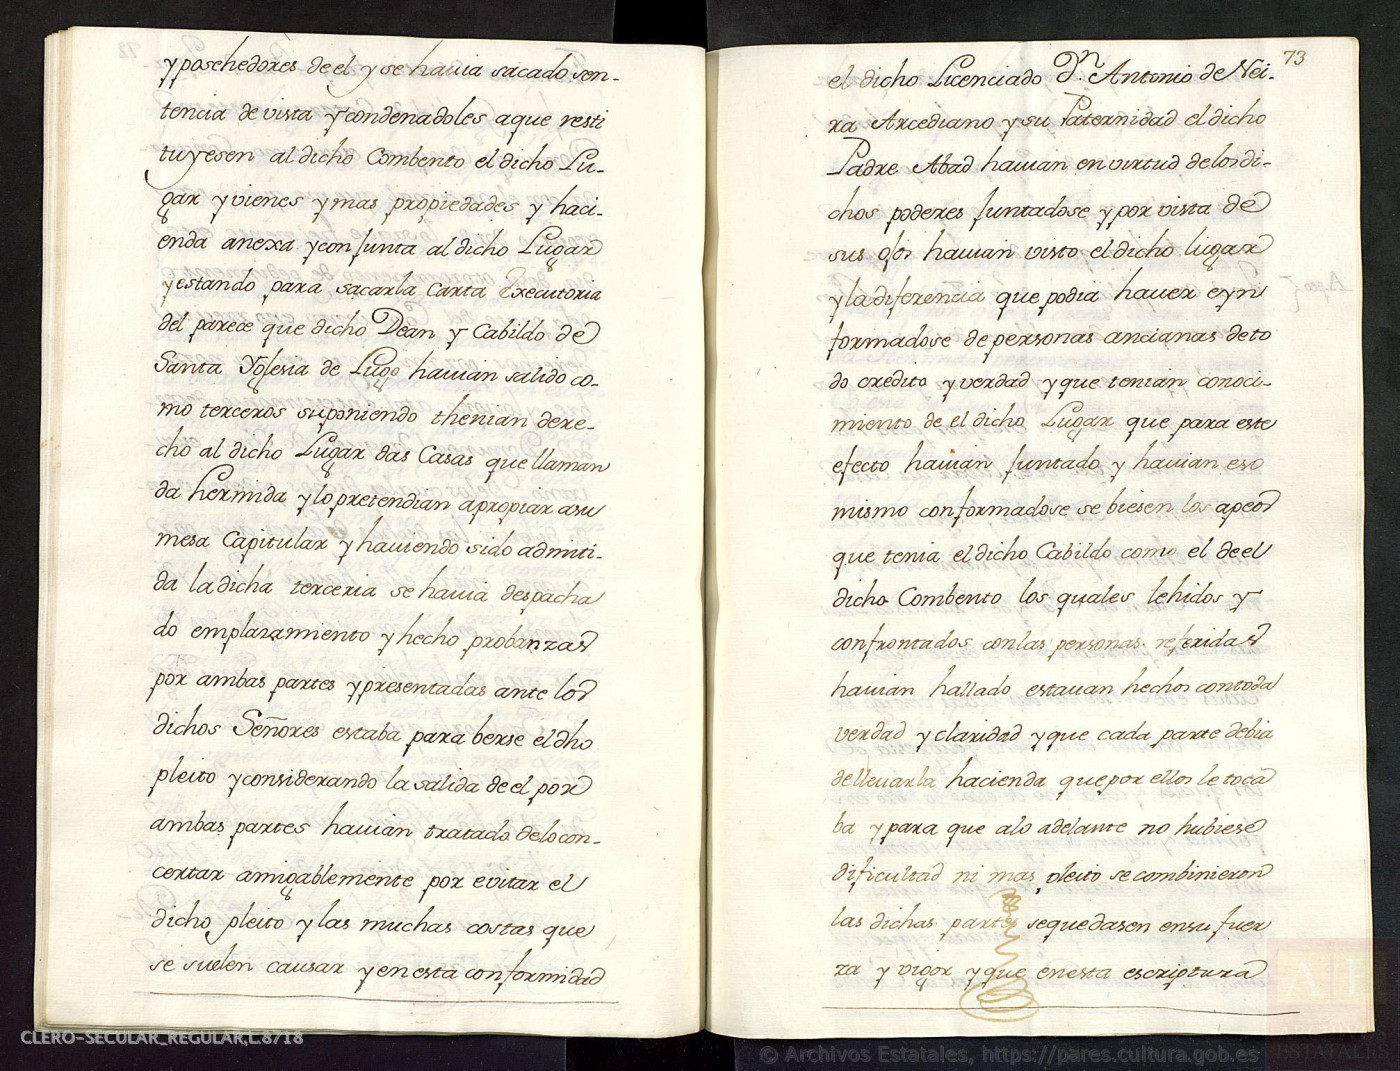 y poschedores de el y se hauia sacado sen-
tencia de vista y condenadoles aque resti
tuyesen al dicho Combento el dicho Lu-
gar y vienes y mas propiedades y haci-
enda anexa y conjunta al dicho Lugar
y estando para sacarla Carta Executoria
del parece que dicho Dean y Cabildo de
Santa Yglesia de Lugo hauian salido co-
mo terceros suponiendo thenian dere-
cho al dicho Lugar das Casas que llaman
da hermida y lo pretendian apropiar asu
mesa Capitular y hauiendo sido admiti-
da la dicha terceria se hauia despacha
do emplazamiento y hecho probanzas
por ambas partes y presentadas ante los
dichos Señores estaba para berse el dho
pleito y considerando la salida de el por
ambas partes hauian tratado delo con-
certar amigablemente por evitar el
dicho pleito y las muchas costas que
se suelen causar y en esta conformidad
73
el dicho Licenciado Dn. Antonio de Nei-
ra Arcediano y su Paternidad el dicho
Padre Abad hauian en virtud delos di-
chos poderes juntadose y por vista de
sus ojos hauian visto el dicho lugar
y la diferencia que podia hauer eyn
formadose de personas ancianas deto
do credito y verdad y que tenian conoci-
miento de el dicho Lugar que para este
efecto hauian juntado y hauian eso
mismo conformadose se biesen los apeos
que tenia el dicho Cabildo como el de el
dicho Combento los quales lehidos y
confrontados con las personas referidas
hauian hallado estauan hechos con toda
verdad y claridad y que cada parte debia
de lleuar la hacienda que por ellos le toca
ba y para que alo adelante no hubiese
dificultad ni mas pleito se combinieron
las dichas partes sequedasen en su fuer
za y vigor y que en esta escriptura
CLERO-SECULAR_REGULAR,L.8718
© Archivos Estatales, https://pares.cultura.gob.es